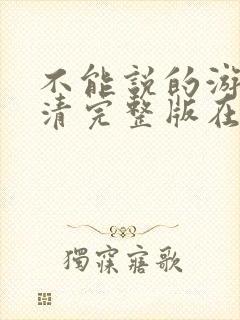 不能説的游
清完整版在
獨寐寤歌